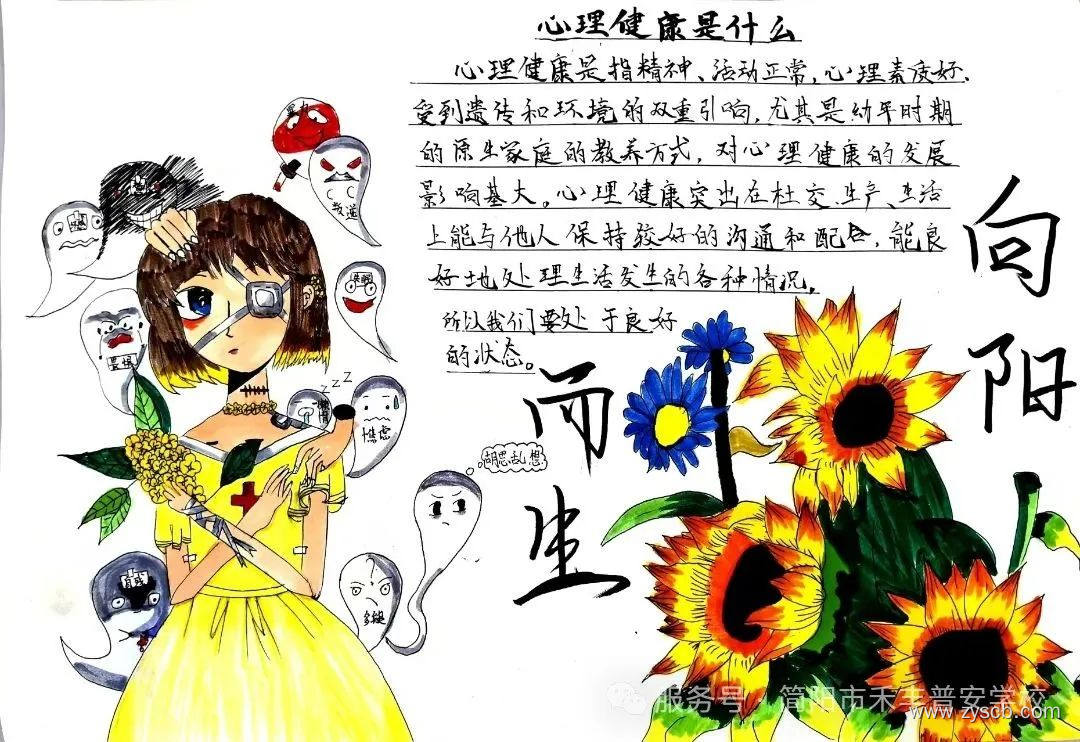 心理健康是什么
心理健康是指精神、活动正常,心理素质好、
受到遗传和环境的双重引响,尤其是幼年时期
的原生家庭的教养方式,对心理健康的发展
影响基大。心理健康突出在社交、生产、生活
上能与他人保持较好的沟通和配合,能良
好地处理生活发生的各种情况,
所以我们要处于良好
的状态。
向阳
而生
暴力
叛逆
焦虑
zzz
胡思乱想
自残
多疑
服务号·简阳市禾丰普安学校
www.zyscb.com